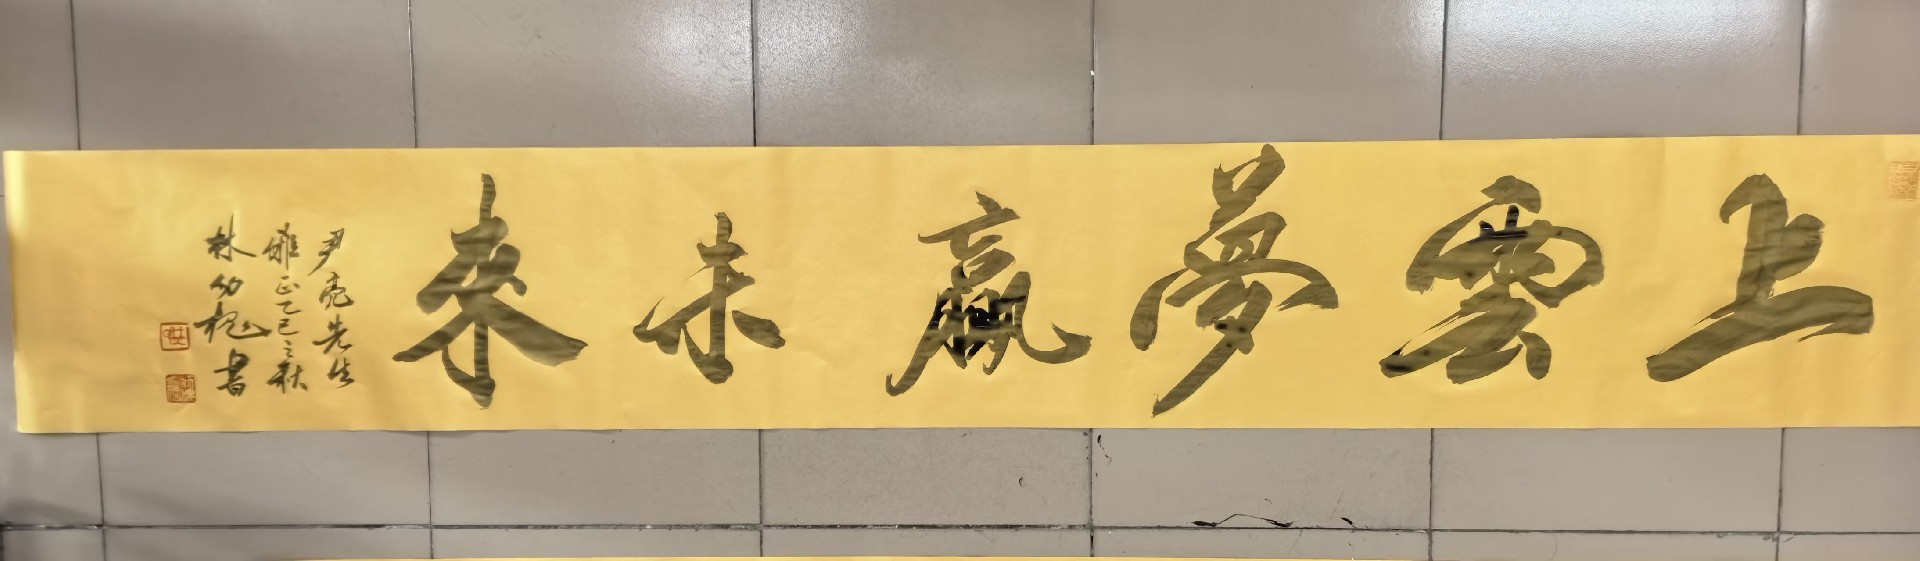 上雲夢贏未來
尹亮先生
雅正乙巳之秋
林幼槐書